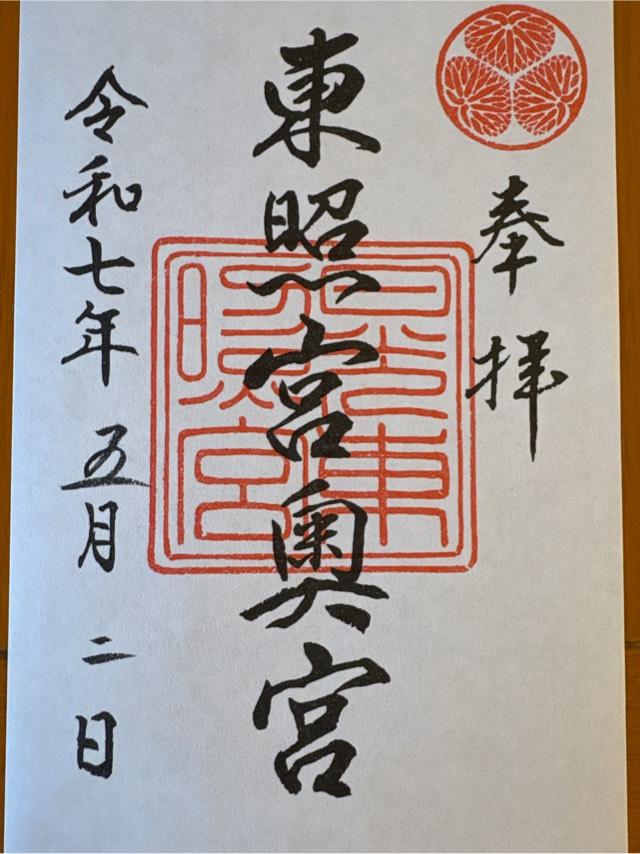 奉拝
東照宮奥宮
日光東照宮
令和七年五月二日